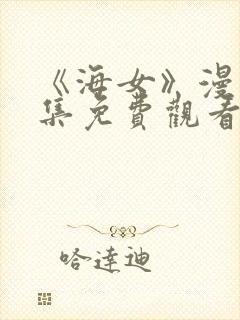 《海女》漫
集免費觀看
哈達迪